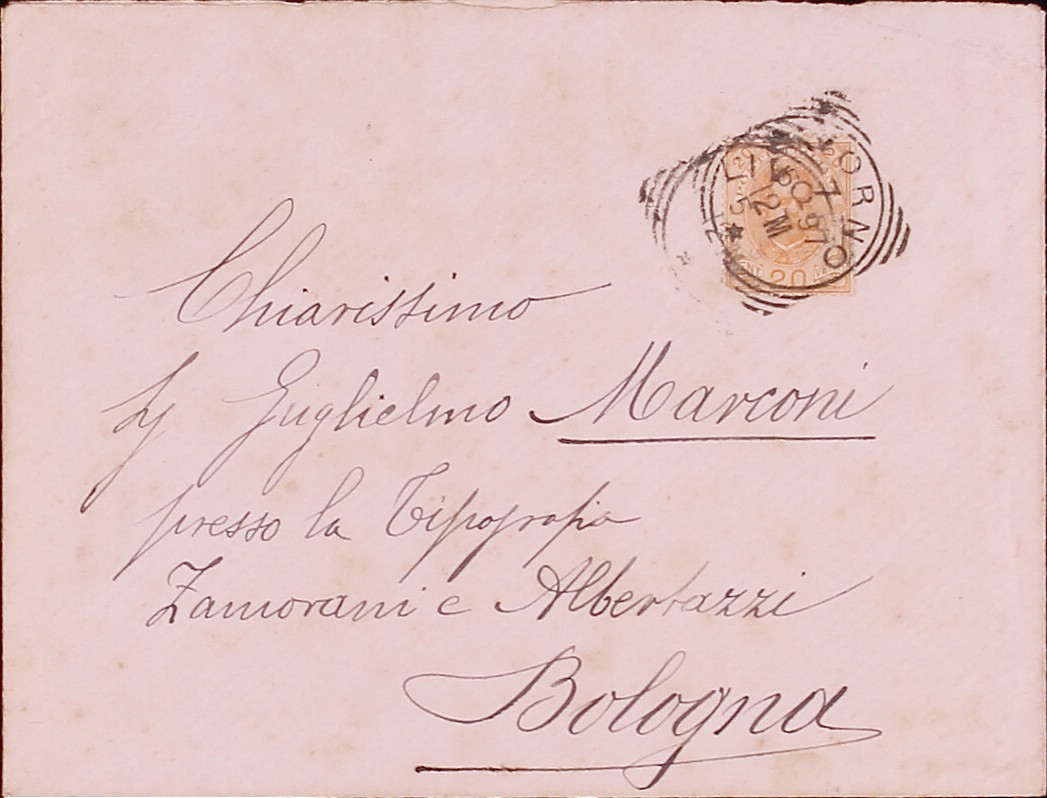 LIVORNO
7
97
12 M
20
Chiarissimo
Sg Guglielmo Marconi
presso la Tipografia
Zamorani e Albertazzi
Bologna